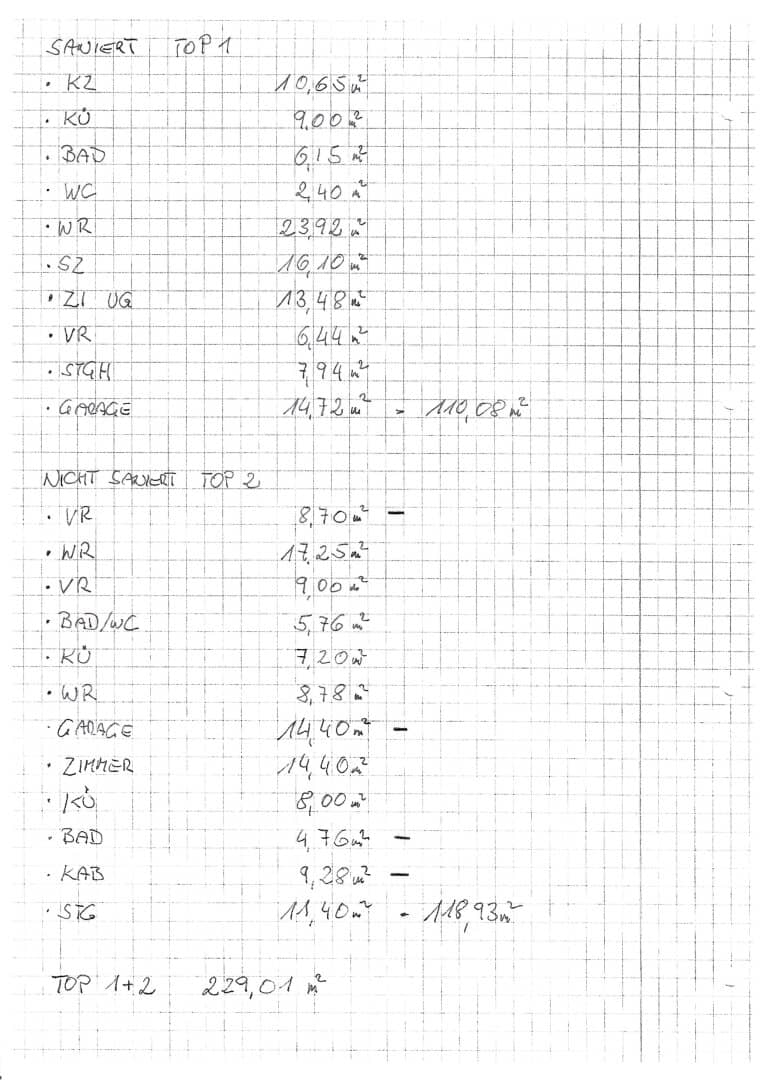 SANIERT TOP 1
· KZ 10,65 m²
· KÜ 9,00 m²
· BAD 6,15 m²
· WC 2,40 m²
· WR 23,92 m²
· SZ 16,10 m²
· ZI UG 13,48 m²
· VR 6,44 m²
· STGH 7,94 m²
· GARAGE 14,72 m² - 110,08 m²
NICHT SANIERT TOP 2
· VR 8,70 m² -
· WR 17,25 m²
· VR 9,00 m²
· BAD/WC 5,76 m²
· KÜ 7,20 m²
· WR 8,78 m²
· GARAGE 14,40 m² -
· ZIMMER 14,40 m²
· KÜ 8,00 m²
· BAD 4,76 m² -
· KAB 9,28 m² -
· STG 11,40 m² - 118,93 m²
TOP 1+2 229,01 m²